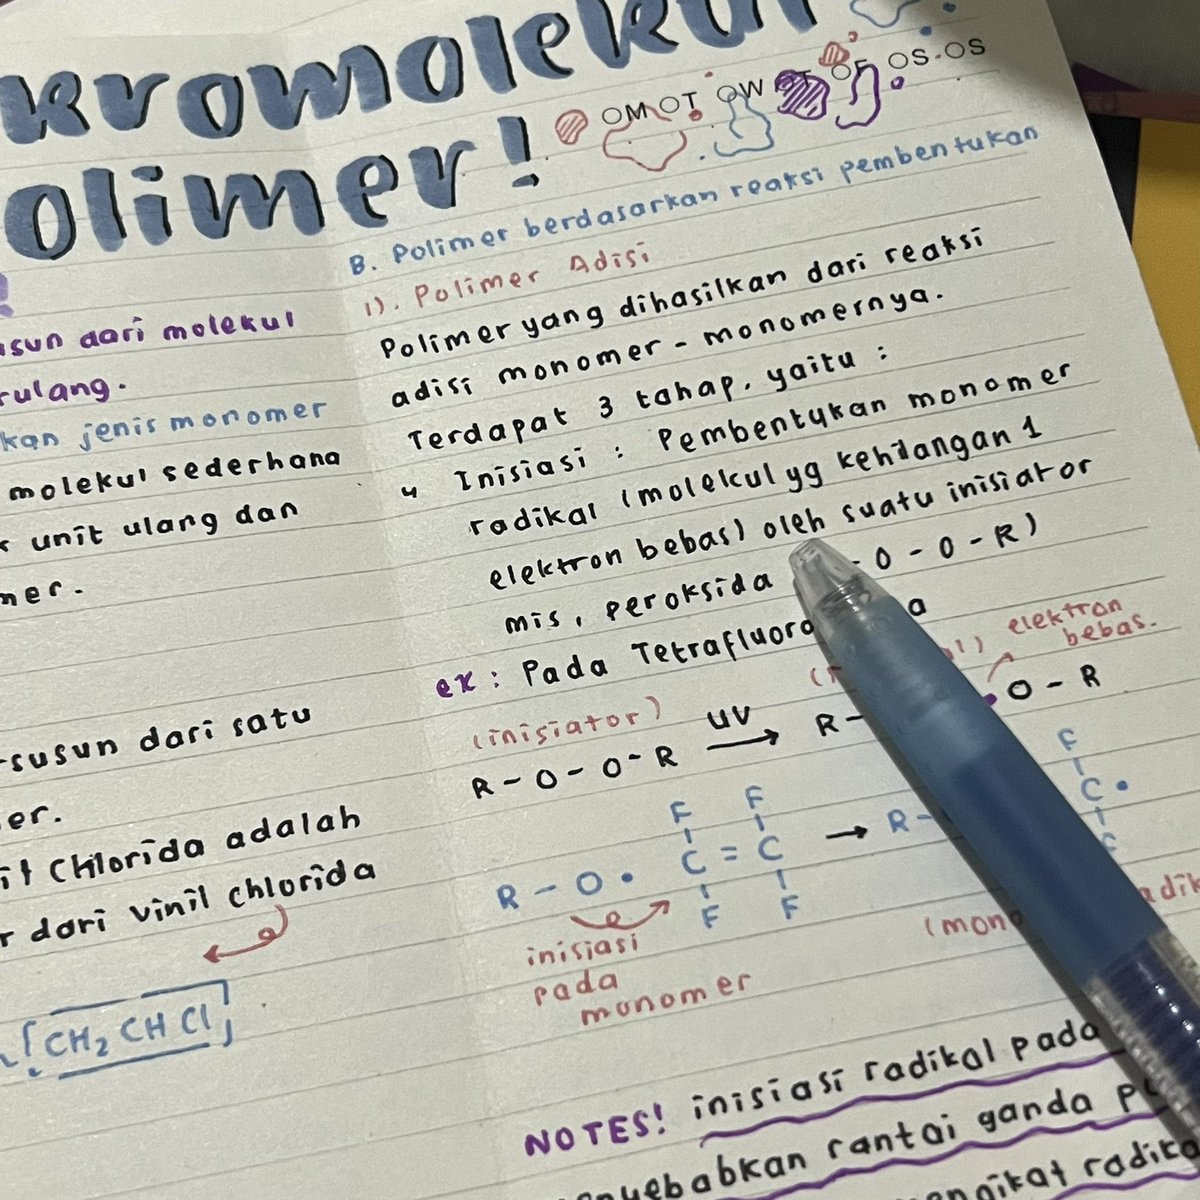 kromolekul
olimer!
OM OT OW OT OF OS OS
usun dari molekul
rulang.
kan jenis monomer
molekul sederhana
unit ulang dan
mer.
rsusun dari satu
er.
il Chlorida adalah
r dari vinil chlorida
[CH₂ CH Cl]
B. Polimer berdasarkan reaksi pembentukan
1). Polimer Adisi
Polimer yang dihasilkan dari reaksi
adisi monomer - monomernya.
Terdapat 3 tahap, yaitu :
↳ Inisiasi : Pembentukan monomer
radikal (molekul yg kehilangan 1
elektron bebas) oleh suatu inisiator
mis, peroksida - O - O - R)
ex : Pada Tetrafluoro a
(inisiator) elektron bebas.
R - O - O - R UV → R - • O - R
R - O • F F C = C F F → R - F C • 
inisiasi
pada
monomer
NOTES! inisiasi radikal pada
yebabkan rantai ganda
ngikat radika